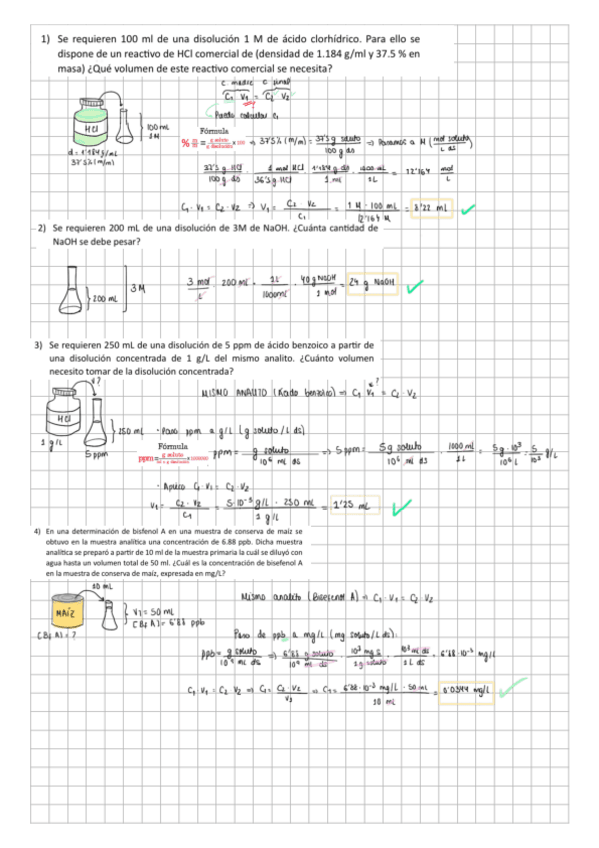 1) Se requieren 100 ml de una disolución 1 M de ácido clorhídrico. Para ello se
dispone de un reactivo de HCl comercial de (densidad de 1.184 g/ml y 37.5 % en
masa) ¿Qué volumen de este reactivo comercial se necesita?
C₁ V₁ = C₂ V₂
Puedo calcular c₁
HCl
100 mL
1M
d = 1'184 g/mL
37'5% (m/m)
Fórmula
37'5% (m/m) = 37'5 g soluto / 100 g ds ⇒ Pasamos a M (mol soluto / L ds)
37'5 g HCl / 100 g ds · 1 mol HCl / 36'5 g HCl · 1'184 g ds / 1 mL · 1000 mL / 1 L = 12'164 mol / L
C₁ · V₁ = C₂ · V₂ ⇒ V₁ = C₂ · V₂ / C₁ = 1 M · 100 mL / 12'164 M = 8'22 mL
2) Se requieren 200 mL de una disolución de 3M de NaOH. ¿Cuánta cantidad de
NaOH se debe pesar?
200 mL
3 M
3 mol / L · 200 mL · 1L / 1000 mL · 40 g NaOH / 1 mol = 24 g NaOH
3) Se requieren 250 mL de una disolución de 5 ppm de ácido benzoico a partir de
una disolución concentrada de 1 g/L del mismo analito. ¿Cuánto volumen
necesito tomar de la disolución concentrada?
V?
MISMO ANALITO (Ácido benzoico) ⇒ C₁ · V₁ = C₂ · V₂
HCl
250 mL
1 g/L
5 ppm
· Paso ppm a g/L (g soluto / L ds)
Fórmula
ppm = g soluto / 10⁶ mL ds ⇒ 5 ppm = 5 g soluto / 10⁶ mL ds · 1000 mL / 1 L = 5 g · 10³ / 10⁶ L = 5 / 10³ g/L
· Aplico C₁ · V₁ = C₂ · V₂
V₁ = C₂ · V₂ / C₁ = 5·10⁻³ g/L · 250 mL / 1 g/L = 1'25 mL
4) En una determinación de bisfenol A en una muestra de conserva de maíz se
obtuvo en la muestra analítica una concentración de 6.88 ppb. Dicha muestra
analítica se preparó a partir de 10 ml de la muestra primaria la cuál se diluyó con
agua hasta un volumen total de 50 ml. ¿Cuál es la concentración de bisefenol A
en la muestra de conserva de maíz, expresada en mg/L?
10 mL
MAÍZ
V₁ = 50 mL
[Bf A] = 6'88 ppb
[Bf A] = ?
Mismo analito (Bisfenol A) ⇒ C₁ · V₁ = C₂ · V₂
Paso de ppb a mg/L (mg soluto / L ds):
C₁ · V₁ = C₂ V₂ ⇒ C₁ = C₂ · V₂ / V₁ ⇒ C₁ = 6'88 · 10⁻³ mg/L · 50 mL / 10 mL = 0'0344 mg/L